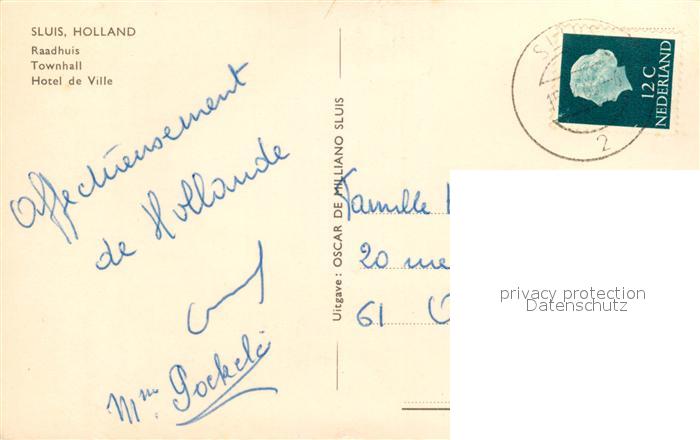 SLUIS, HOLLAND
Raadhuis
Townhall
Hotel de Ville
Affectueusement
de Hollande
Mme
Uitgave: OSCAR DE MILLIANO SLUIS
12 C
NEDERLAND
2
Famille
20
61
privacy protection
Datenschutz